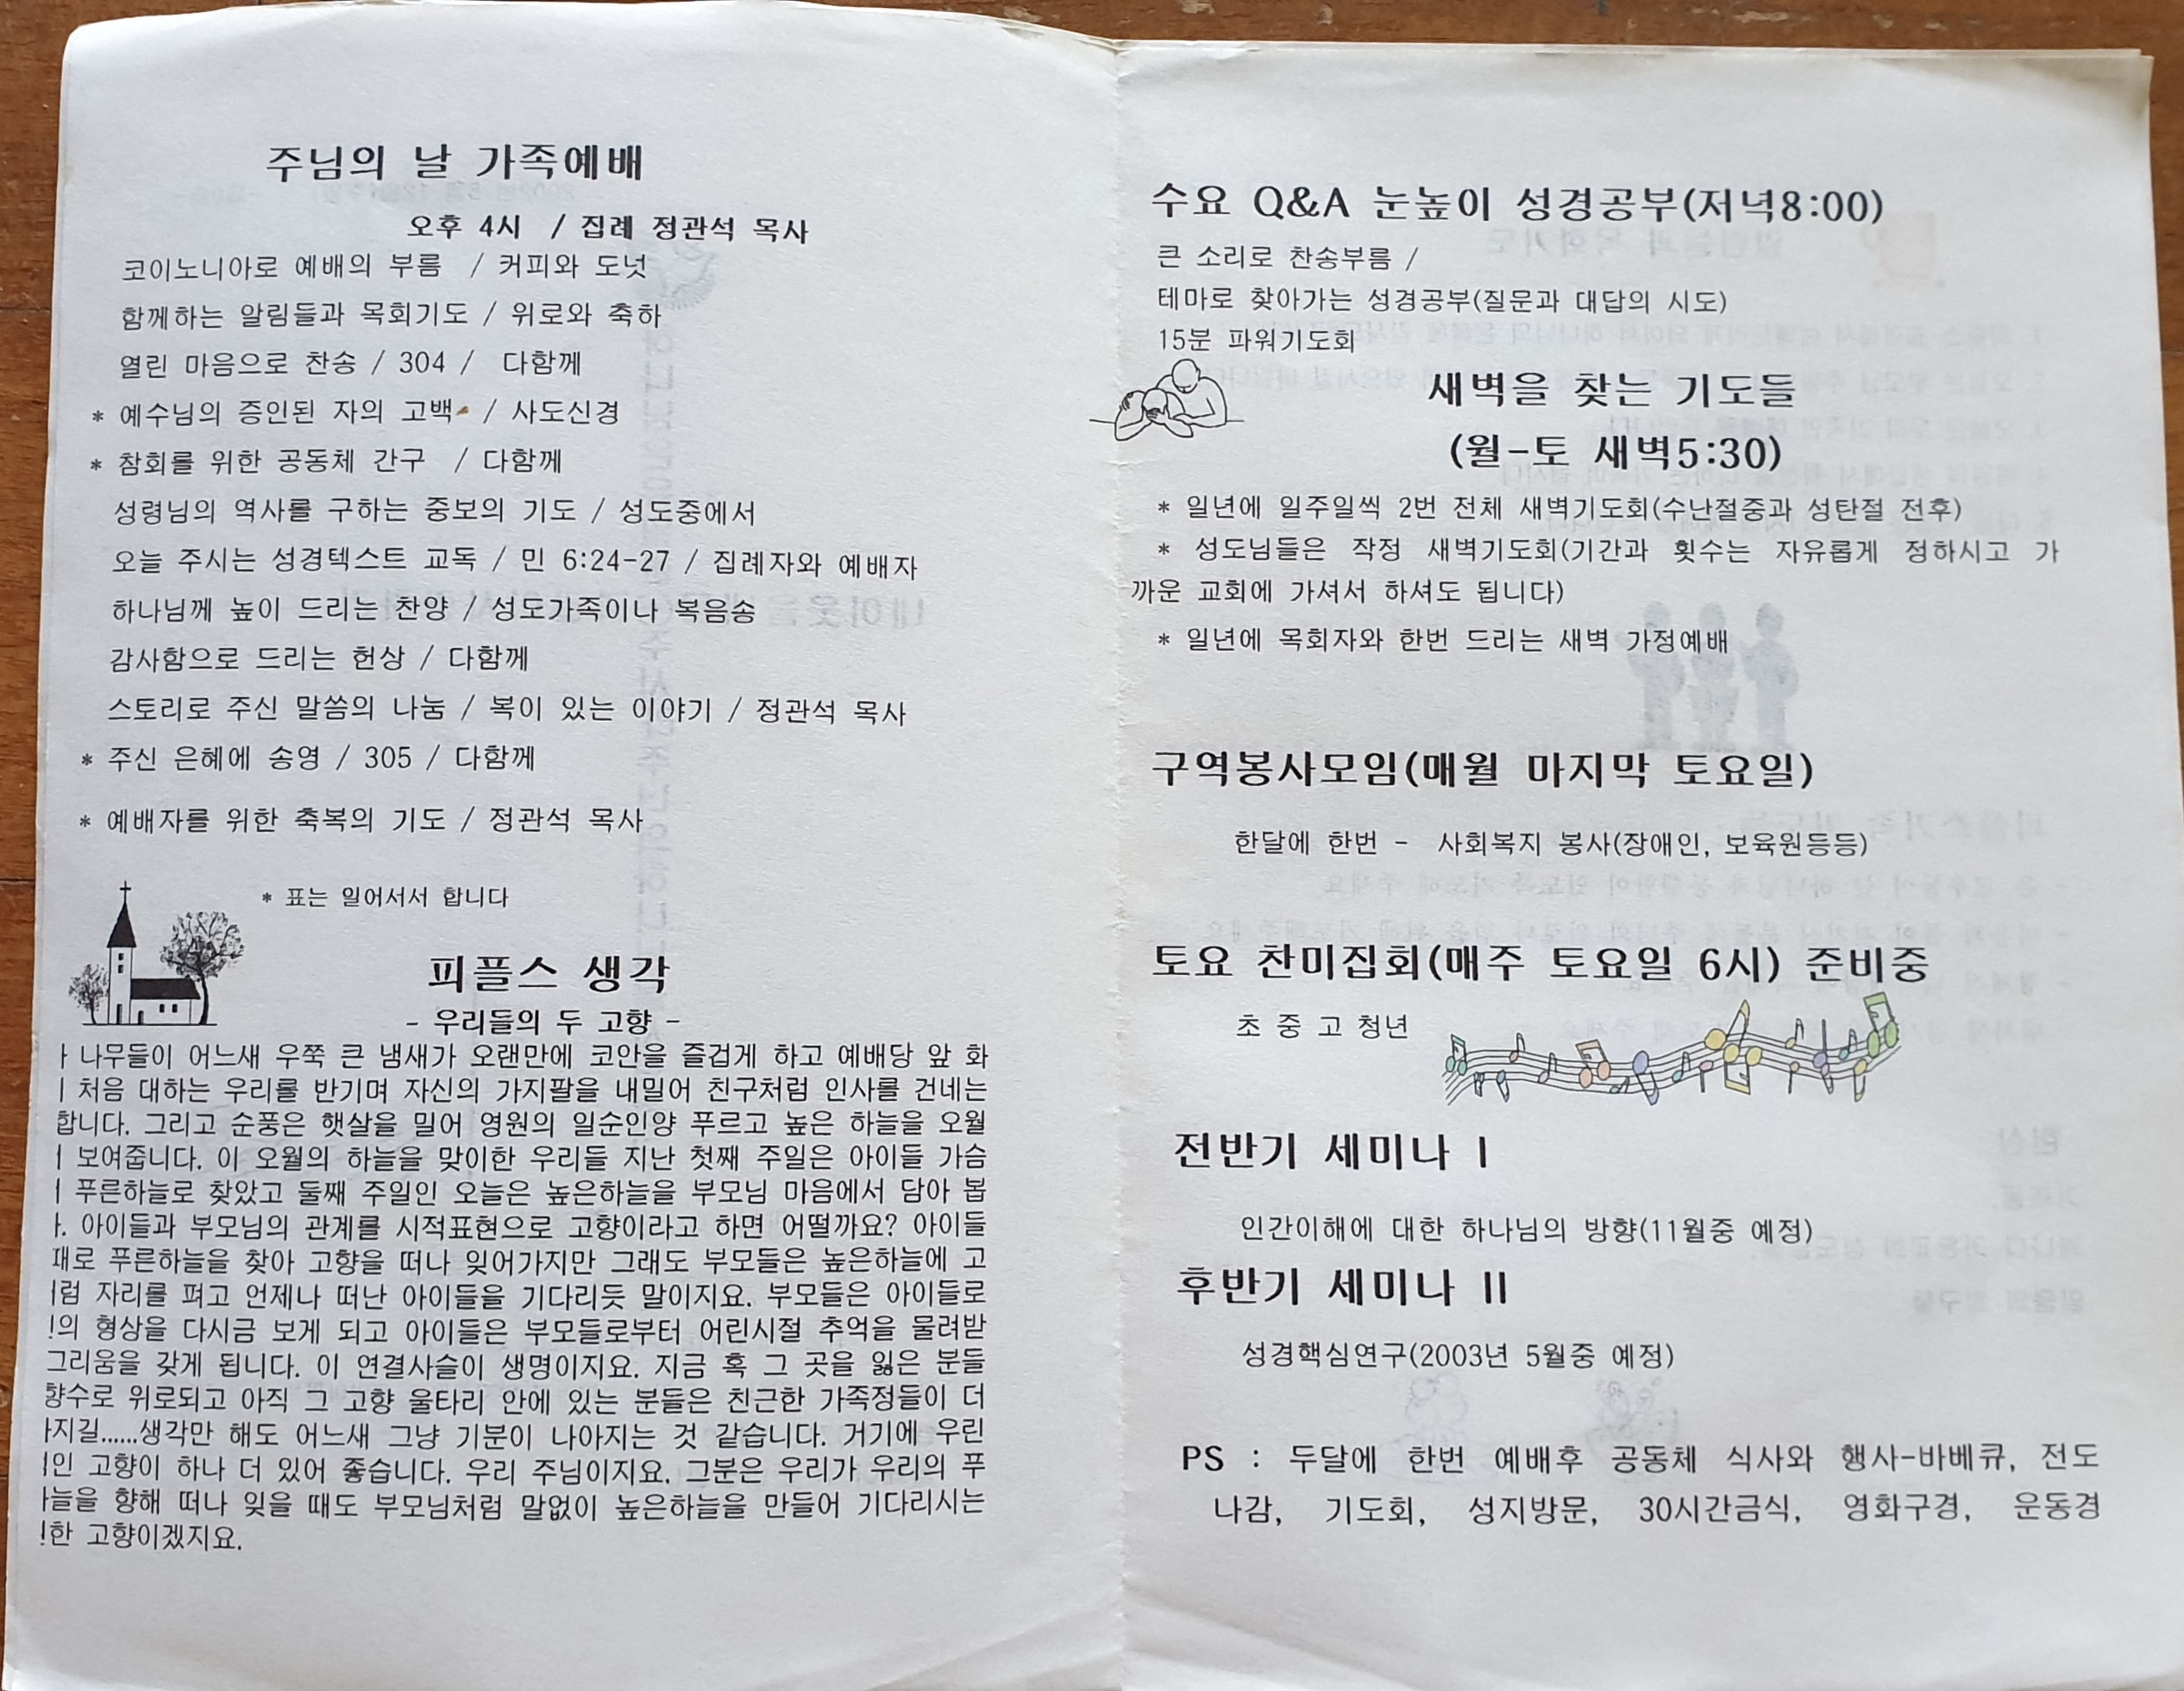 주님의 날 가족예배
오후 4시 / 집례 정관석 목사
코이노니아로 예배의 부름 / 커피와 도넛
함께하는 알림들과 목회기도 / 위로와 축하
열린 마음으로 찬송 / 304 / 다함께
* 예수님의 증인된 자의 고백 / 사도신경
* 참회를 위한 공동체 간구 / 다함께
성령님의 역사를 구하는 중보의 기도 / 성도중에서
오늘 주시는 성경텍스트 교독 / 민 6:24-27 / 집례자와 예배자
하나님께 높이 드리는 찬양 / 성도가족이나 복음송
감사함으로 드리는 헌상 / 다함께
스토리로 주신 말씀의 나눔 / 복이 있는 이야기 / 정관석 목사
* 주신 은혜에 송영 / 305 / 다함께
* 예배자를 위한 축복의 기도 / 정관석 목사
* 표는 일어서서 합니다
피플스 생각
- 우리들의 두 고향 -
나무들이 어느새 우쭉 큰 냄새가 오랜만에 코안을 즐겁게 하고 예배당 앞 화
처음 대하는 우리를 반기며 자신의 가지팔을 내밀어 친구처럼 인사를 건네는
합니다. 그리고 순풍은 햇살을 밀어 영원의 일순인양 푸르고 높은 하늘을 오월
보여줍니다. 이 오월의 하늘을 맞이한 우리들 지난 첫째 주일은 아이들 가슴
푸른하늘로 찾았고 둘째 주일인 오늘은 높은하늘을 부모님 마음에서 담아 봅
. 아이들과 부모님의 관계를 시적표현으로 고향이라고 하면 어떨까요? 아이들
재로 푸른하늘을 찾아 고향을 떠나 잊어가지만 그래도 부모들은 높은하늘에 고
럼 자리를 펴고 언제나 떠난 아이들을 기다리듯 말이지요. 부모들은 아이들로
의 형상을 다시금 보게 되고 아이들은 부모들로부터 어린시절 추억을 물려받
그리움을 갖게 됩니다. 이 연결사슬이 생명이지요. 지금 혹 그 곳을 잃은 분들
향수로 위로되고 아직 그 고향 울타리 안에 있는 분들은 친근한 가족정들이 더
지길......생각만 해도 어느새 그냥 기분이 나아지는 것 같습니다. 거기에 우린
인 고향이 하나 더 있어 좋습니다. 우리 주님이지요. 그분은 우리가 우리의 푸
늘을 향해 떠나 잊을 때도 부모님처럼 말없이 높은하늘을 만들어 기다리시는
한 고향이겠지요.
수요 Q&A 눈높이 성경공부(저녁8:00)
큰 소리로 찬송부름 /
테마로 찾아가는 성경공부(질문과 대답의 시도)
15분 파워기도회
새벽을 찾는 기도들
(월-토 새벽5:30)
* 일년에 일주일씩 2번 전체 새벽기도회(수난절중과 성탄절 전후)
* 성도님들은 작정 새벽기도회(기간과 횟수는 자유롭게 정하시고 가
까운 교회에 가셔서 하셔도 됩니다)
* 일년에 목회자와 한번 드리는 새벽 가정예배
구역봉사모임(매월 마지막 토요일)
한달에 한번 - 사회복지 봉사(장애인, 보육원등등)
토요 찬미집회(매주 토요일 6시) 준비중
초 중 고 청년
전반기 세미나 I
인간이해에 대한 하나님의 방향(11월중 예정)
후반기 세미나 II
성경핵심연구(2003년 5월중 예정)
PS : 두달에 한번 예배후 공동체 식사와 행사-바베큐, 전도
나감, 기도회, 성지방문, 30시간금식, 영화구경, 운동경